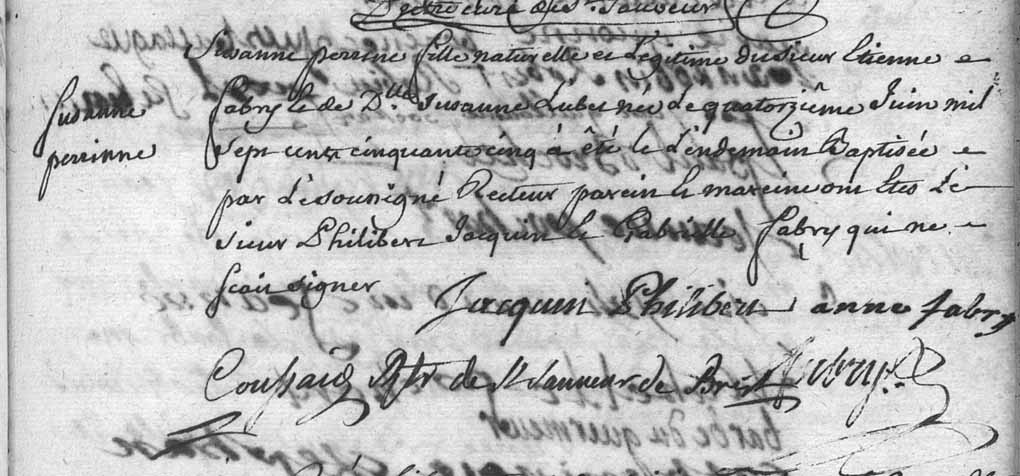 Rectr curé de St Sauveur
Susanne perrine fille naturelle et Légitime du sieur Etienne
Susanne
perrinne
fabry et de Dlle Susanne Lubet née Le quatorzième Juin mil
Sept cent cinquante cinq à été le L'endemain Baptisée
par Le soussigné Recteur parein et mareine ont étés Le
Sieur Philibert Jacquin et Gabrielle fabry qui ne
scait signer
Jacquin Philibert anne fabry
de St Sauveur de Brest fabry